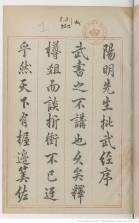 陽明先生批武經序
武書之不講也久矣釋
樽俎而談折衝不已迂
乎然天下有握邊筭佐